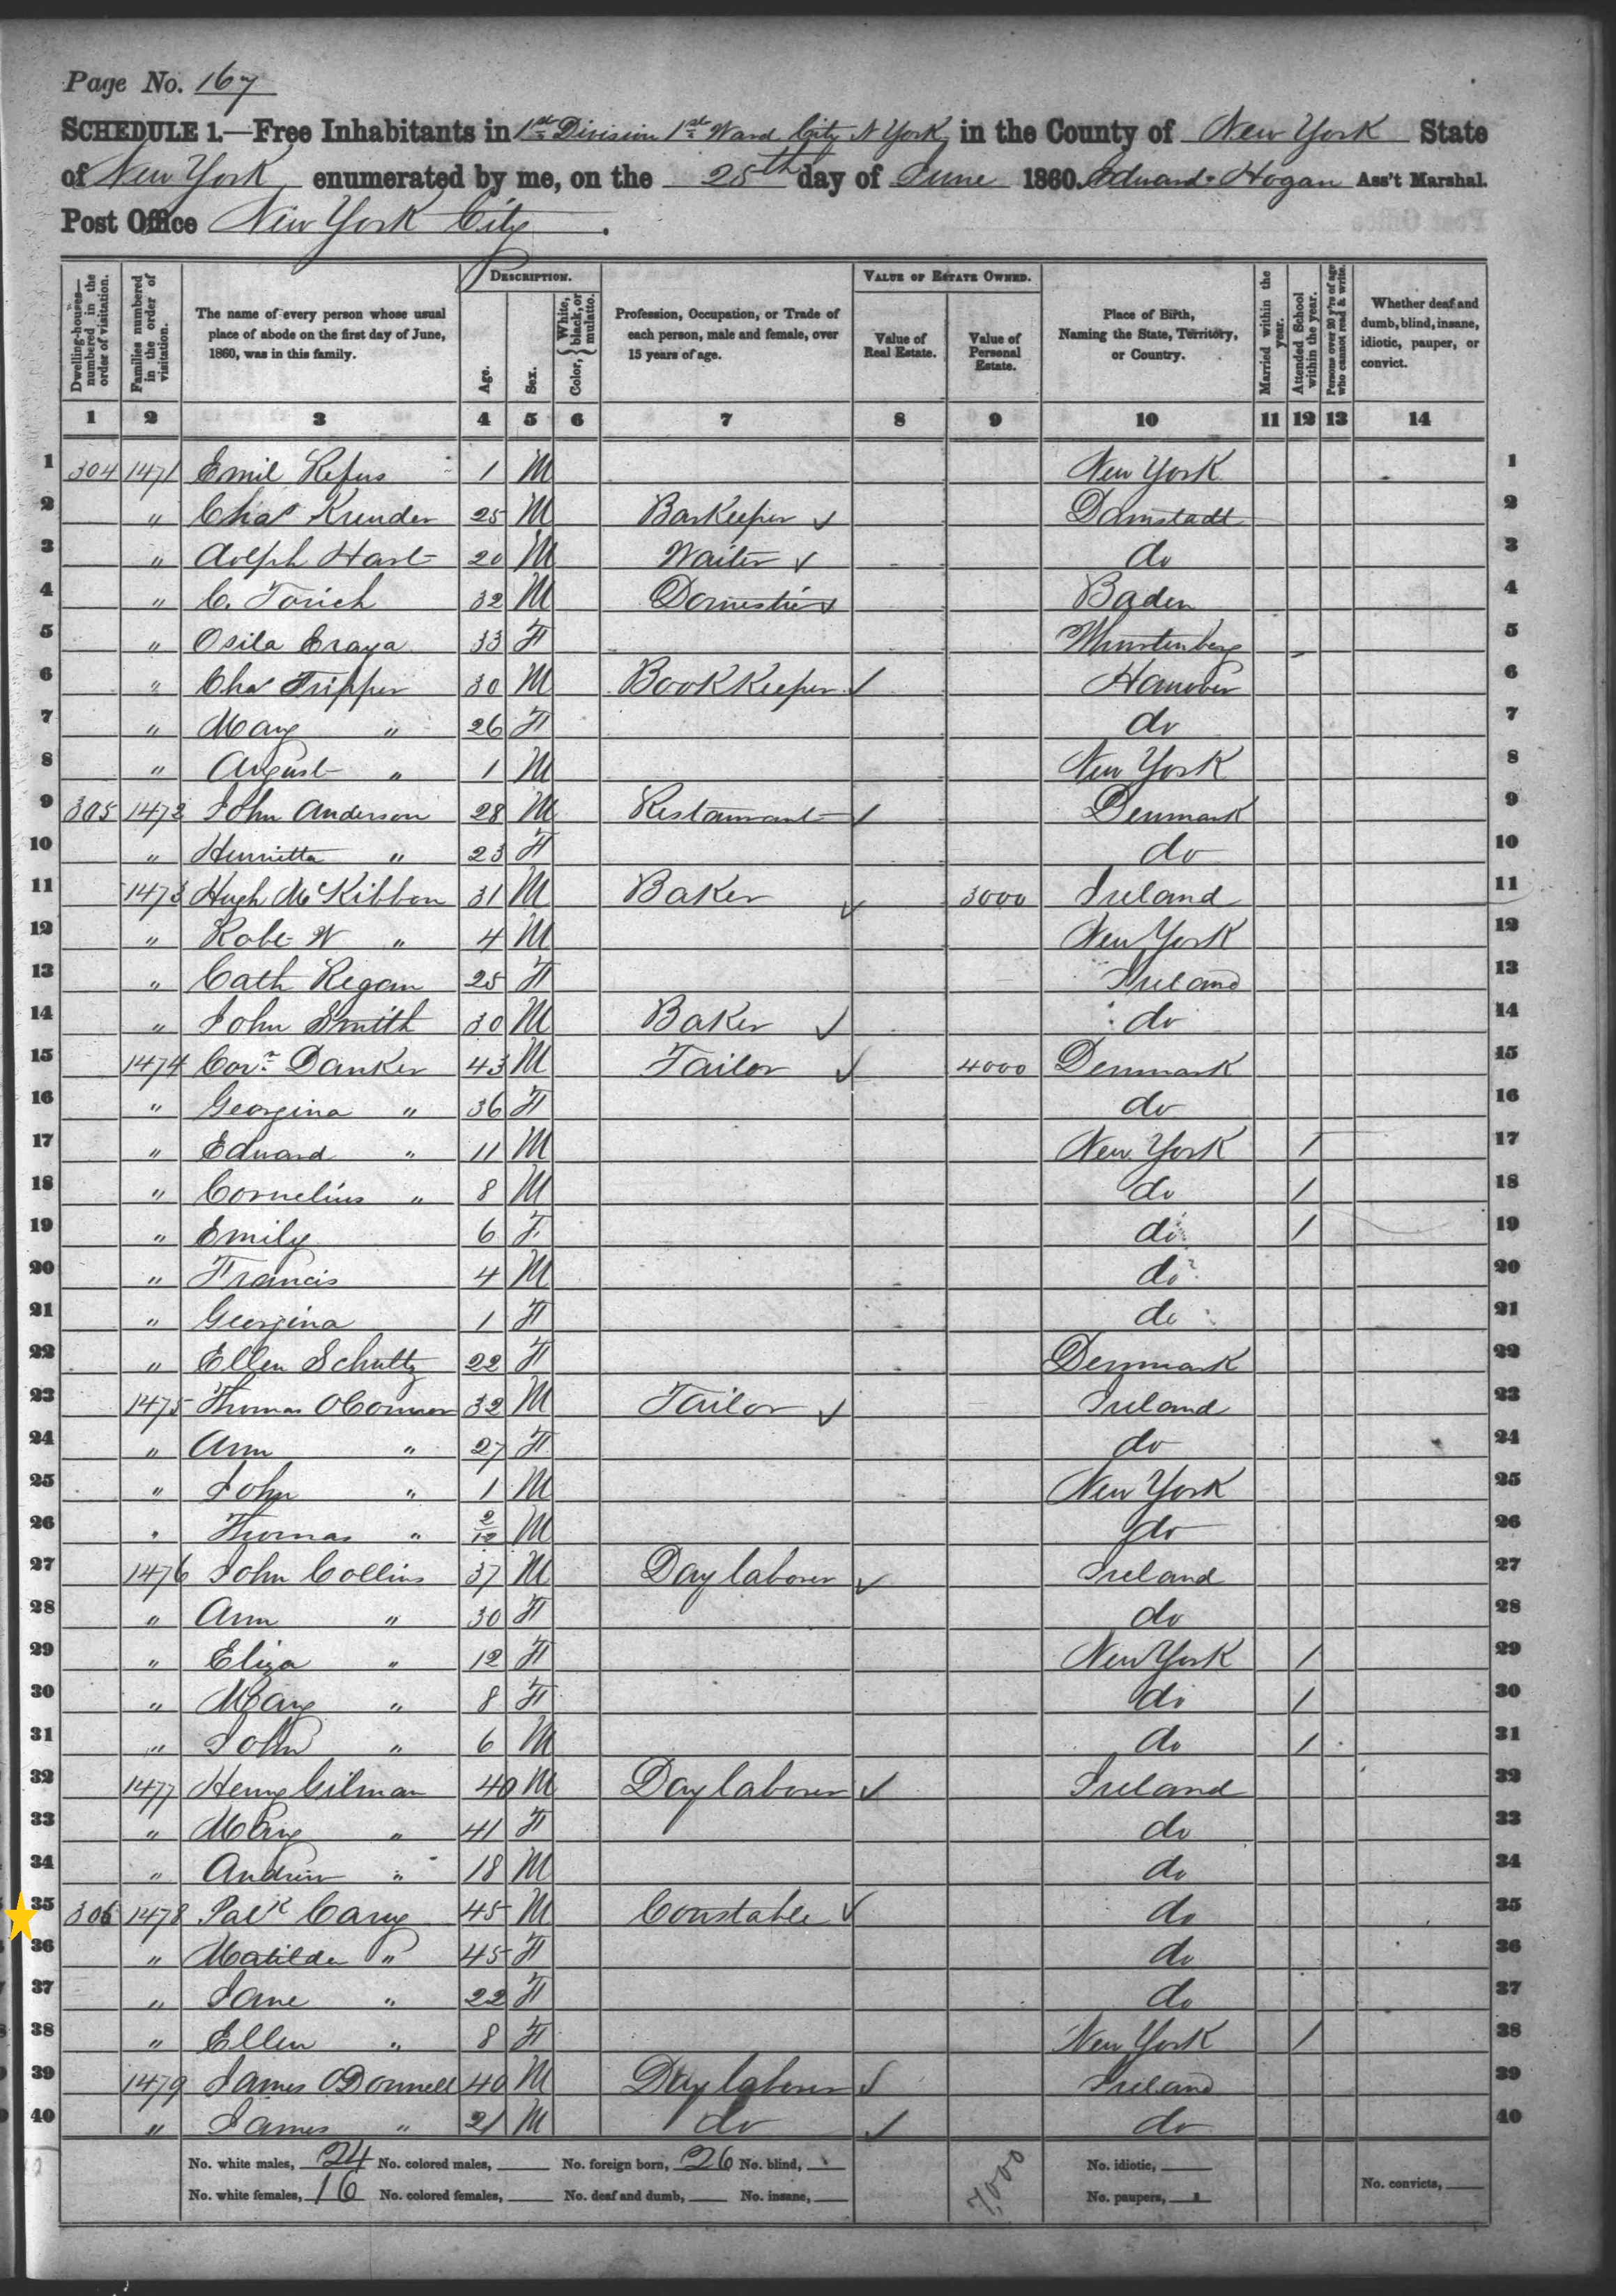 Page No. 167
SCHEDULE 1.—Free Inhabitants in 1st Division 1st Ward City N York in the County of New York State
of New York enumerated by me, on the 28th day of June 1860. Edward Hogan Ass't Marshal.
Post Office New York City.
DESCRIPTION. VALUE OF ESTATE OWNED.
Dwelling-houses—numbered in the order of visitation. Families numbered in the order of visitation. The name of every person whose usual place of abode on the first day of June, 1860, was in this family. Age. Sex. Color, {White, black, or mulatto. Profession, Occupation, or Trade of each person, male and female, over 15 years of age. Value of Real Estate. Value of Personal Estate. Place of Birth, Naming the State, Territory, or Country. Married within the year. Attended School within the year. Persons over 20 y'rs of age who cannot read & write. Whether deaf and dumb, blind, insane, idiotic, pauper, or convict.
1 2 3 4 5 6 7 8 9 10 11 12 13 14
1 304 1471 Emil Refus 1 M New York 1
2 " Chas Krender 25 M Barkeeper ✓ Damstadt 2
3 " Adolph Hart 20 M Waiter ✓ do 3
4 " C. Torich 32 M Domestic ✓ Baden 4
5 " Osila Eraya 33 F Whurtenberg 5
6 " Chas Tripper 30 M BookKeeper ✓ Hanover 6
7 " Mary " 26 F do 7
8 " August " 1 M New York 8
9 305 1472 John Anderson 28 M Restaurant ✓ Denmark 9
10 " Henrietta " 23 F do 10
11 1473 Hugh McKibbon 31 M Baker ✓ 3000 Ireland 11
12 " Robt W " 4 M New York 12
13 " Cath Regan 25 F Ireland 13
14 " John Smith 30 M Baker ✓ do 14
15 1474 Corn Danker 43 M Tailor ✓ 4000 Denmark 15
16 " Georgina " 36 F do 16
17 " Edward " 11 M New York / 17
18 " Cornelius " 8 M do / 18
19 " Emily 6 F do / 19
20 " Francis 4 M do 20
21 " Georgina 1 F do 21
22 " Ellen Schultz 22 F Denmark 22
23 1475 Thomas OConnor 32 M Tailor ✓ Ireland 23
24 " Ann " 27 F do 24
25 " John " 1 M New York 25
26 " Thomas " 2/12 M do 26
27 1476 John Collins 37 M Day laborer ✓ Ireland 27
28 " Ann " 30 F do 28
29 " Eliza " 12 F New York / 29
30 " Mary " 8 F do / 30
31 " John " 6 M do / 31
32 1477 Henry Gilman 40 M Day laborer ✓ Ireland 32
33 " Mary " 41 F do 33
34 " Andrew " 18 M do 34
35 306 1478 Patk Carey 45 M Constable ✓ do 35
36 " Matilda " 45 F do 36
37 " Jane " 22 F do 37
38 " Ellen " 8 F New York / 38
39 1479 James ODonnell 40 M Day laborer ✓ Ireland 39
40 " James " 21 M do ✓ do 40
No. white males, 24 No. colored males, No. foreign born, 26 No. blind, 7,000 No. idiotic,
No. white females, 16 No. colored females, No. deaf and dumb, No. insane, No. paupers, No. convicts,